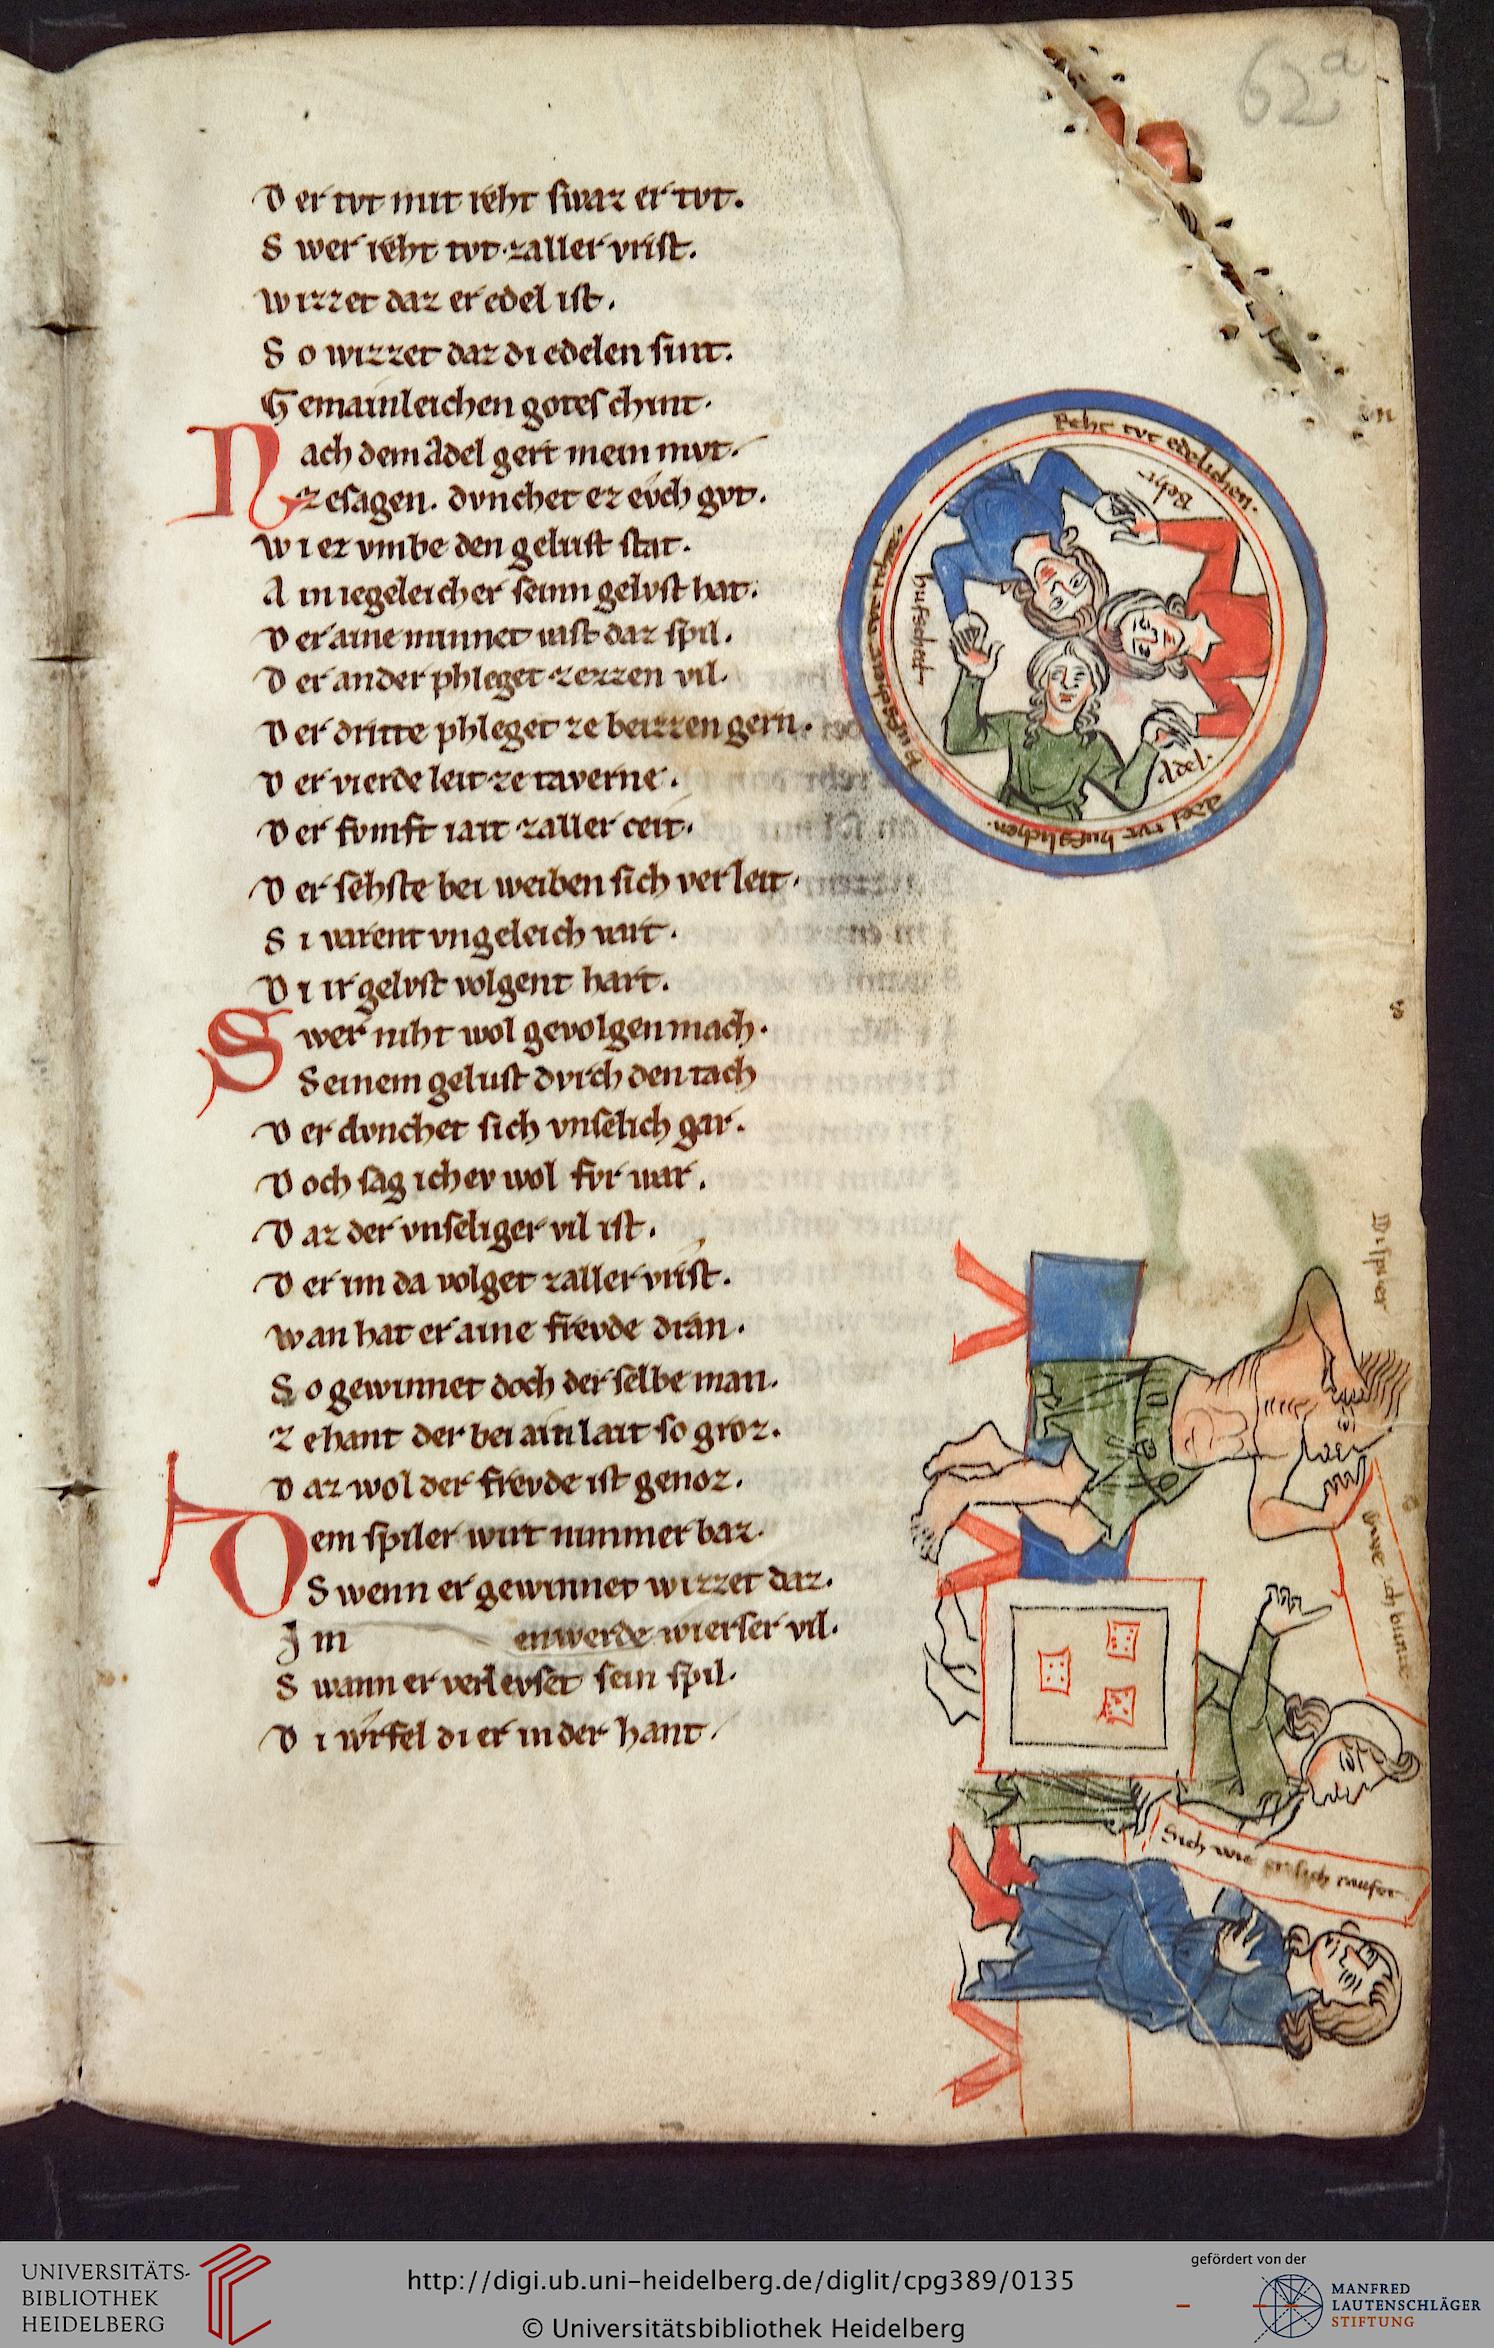 62a
D er tvt mit reht swaz er tvt.
S wer reht tvt zaller vrist.
W izzet daz er edel ist.
S o wizzet daz di edelen sint.
G emainleichen gotes chint.
N ach dem adel gert mein mvt.
z esagen. dvnchet ez evch gvt.
w i ez vmbe den gelust stat.
A in iegeleicher seinn gelvst hat.
D er aine minnet vast daz spil.
D er ander phleget zezzen vil.
D er dritte phleget ze beizzen gern.
D er vierde leit ze taverne.
D er fvmft iait zaller ceit.
D er sehste bei weiben sich verleit.
S i varent vngeleich vart.
D i ir gelvst volgent hart.
S wer niht wol gevolgen mach.
S einem gelust dvrch den tach
D er dvnchet sich vnselich gar.
D och sag ich ev wol fvr war.
D az der vnseliger vil ist.
D er im da volget zaller vrist.
w an hat er aine frevde dran.
S o gewinnet doch der selbe man.
z ehant der bei ain lait so groz.
D az wol der frevde ist genoz.
D em spiler wirt nimmer baz.
S wenn er gewinnet wizzet daz.
I m enwerde wierser vil.
S wann er verlevset sein spil.
D i wrfel di er in der hant.
Reht tvt edelichen.
Reht
hufscheit
Adel.
adel tvt hufslichen.
Di spiler
Sich wie er sich raufet
UNIVERSITÄTS-
BIBLIOTHEK
HEIDELBERG
http://digi.ub.uni-heidelberg.de/diglit/cpg389/0135
© Universitätsbibliothek Heidelberg
gefördert von der
MANFRED
LAUTENSCHLÄGER
STIFTUNG